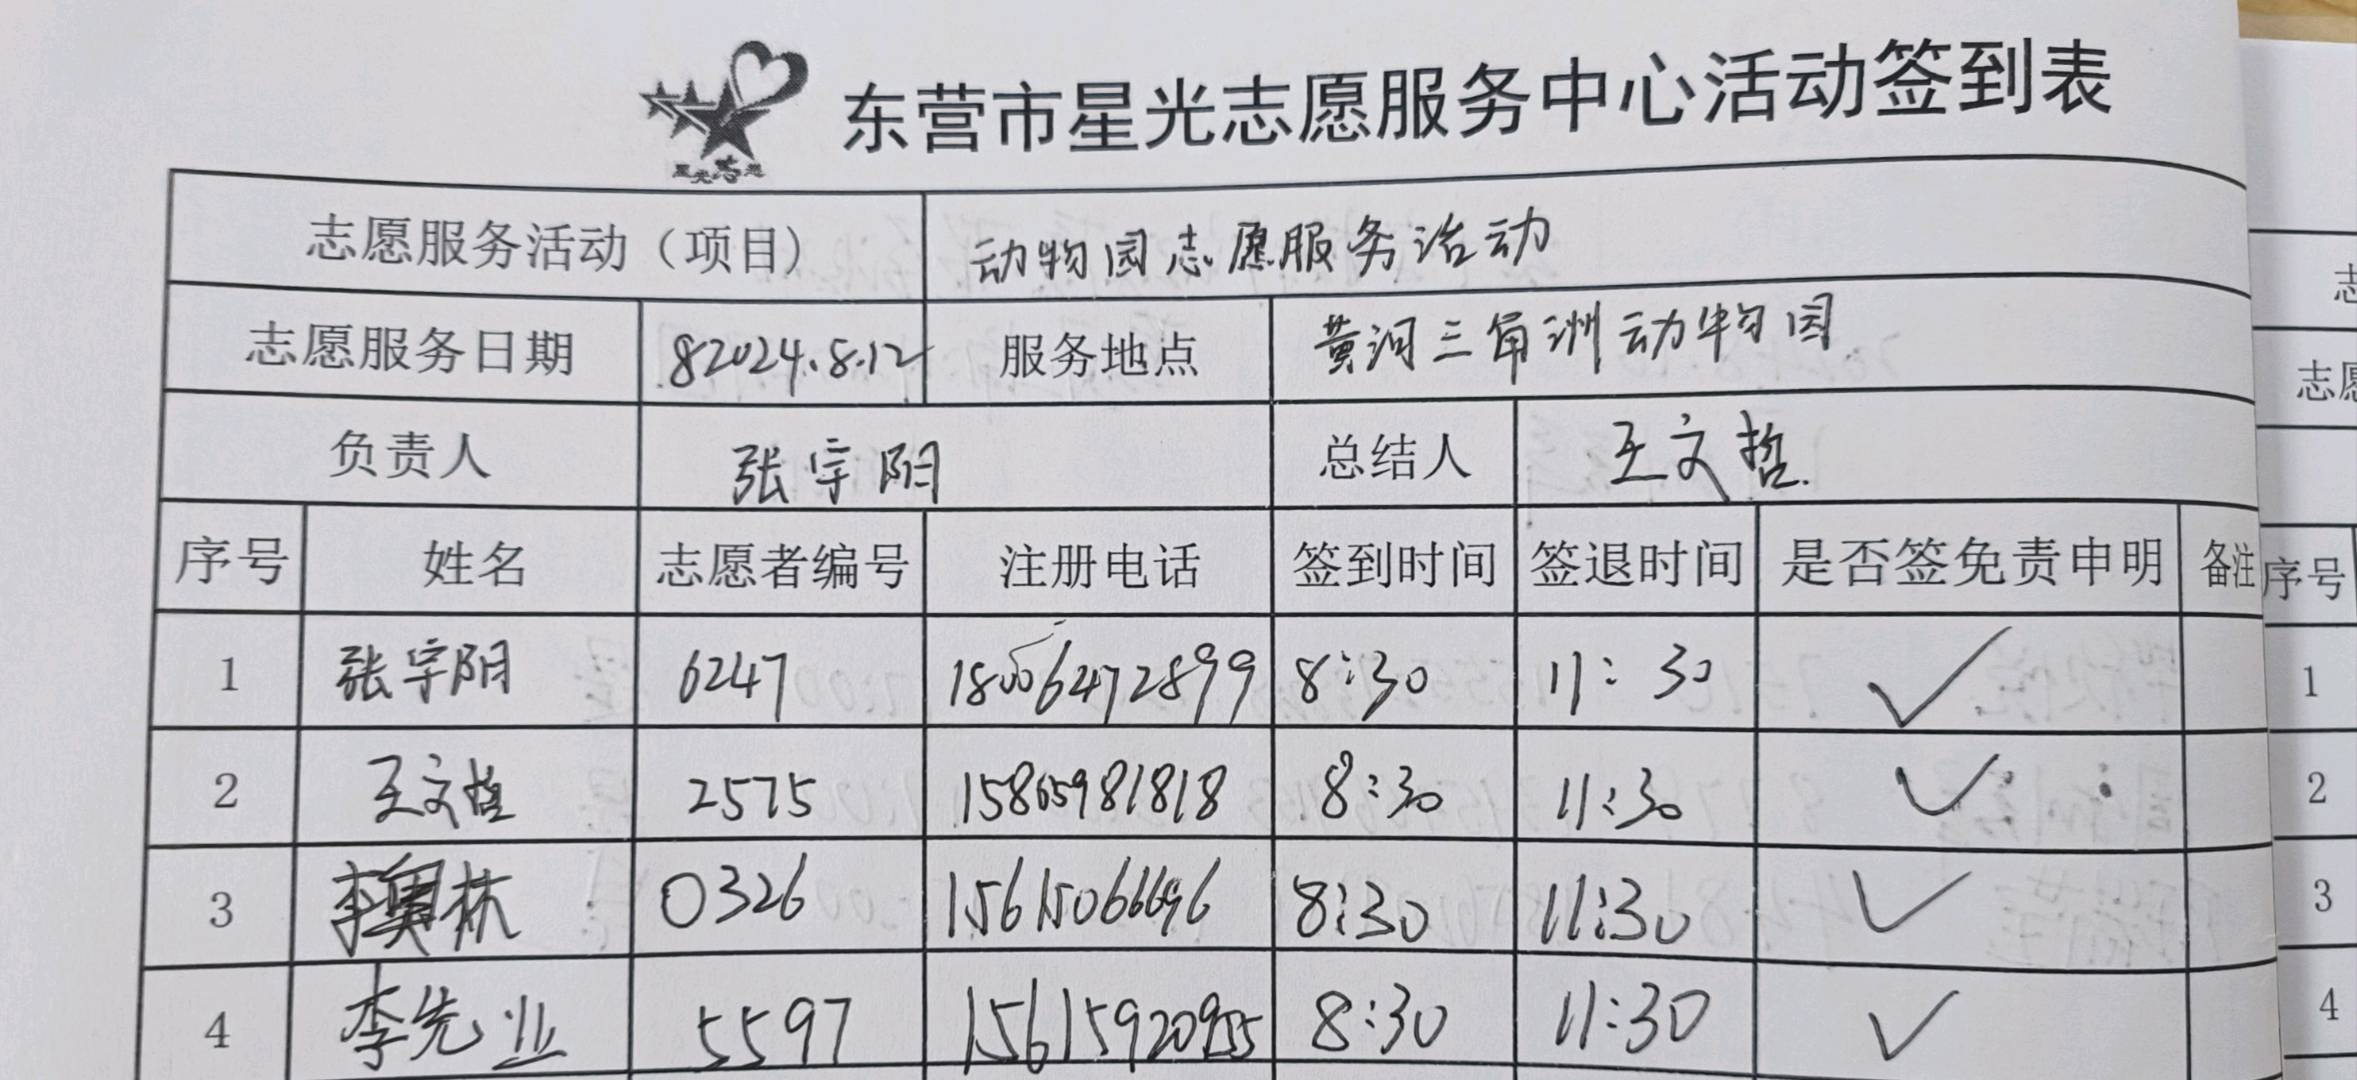 东营市星光志愿服务中心活动签到表
星光志愿
志愿服务活动（项目） 动物园志愿服务活动
志愿服务日期 82024.8.12 服务地点 黄河三角洲动物园
负责人 张宇阳 总结人 王文哲
序号 姓名 志愿者编号 注册电话 签到时间 签退时间 是否签免责申明 备注
1 张宇阳 6247 18006472899 8:30 11:30 ✓
2 王文哲 2575 15865981818 8:30 11:30 ✓
3 李奥林 0326 15615066696 8:30 11:30 ✓
4 李先业 5597 15615920955 8:30 11:30 ✓
志
志愿
序号
1
2
3
4